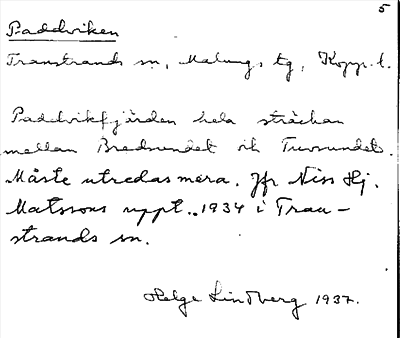 5
Paddviken
Transtrands sn, Malungs tg, Kopp. l.
Paddvikfjärden hela sträckan
mellan Bredsundet och Tuvsundet.
Måste utredas mera. Jfr Niss Hj.
Matssons uppt. 1934 i Tran-
strands sn.
Helge Lindberg 1937.